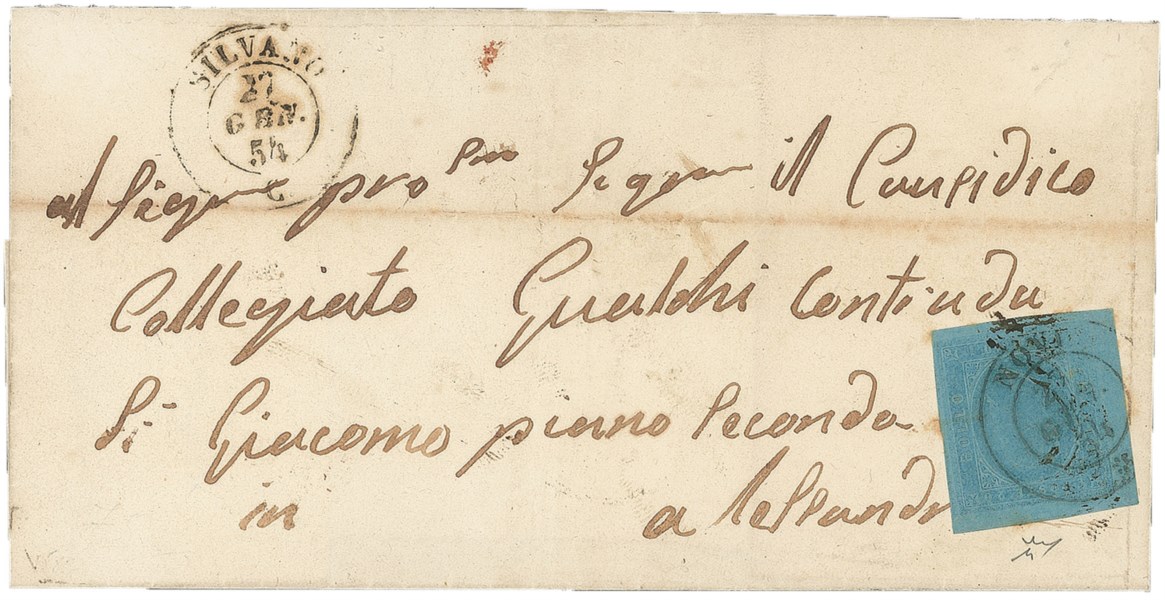 SILVANO
27
GEN.
54
al Sigre pro Sigre il Causidico
Collegiato Gualchi contrada
Sn Giacomo piano Secondo
in alessandr
NOVI
BOLLO